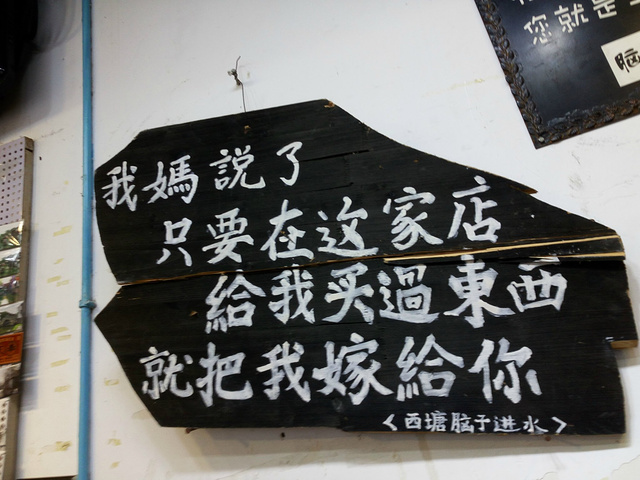 我媽説了
只要在这家店
給我买過東西
就把我嫁給你
<西塘脑子进水>
您就是
脑